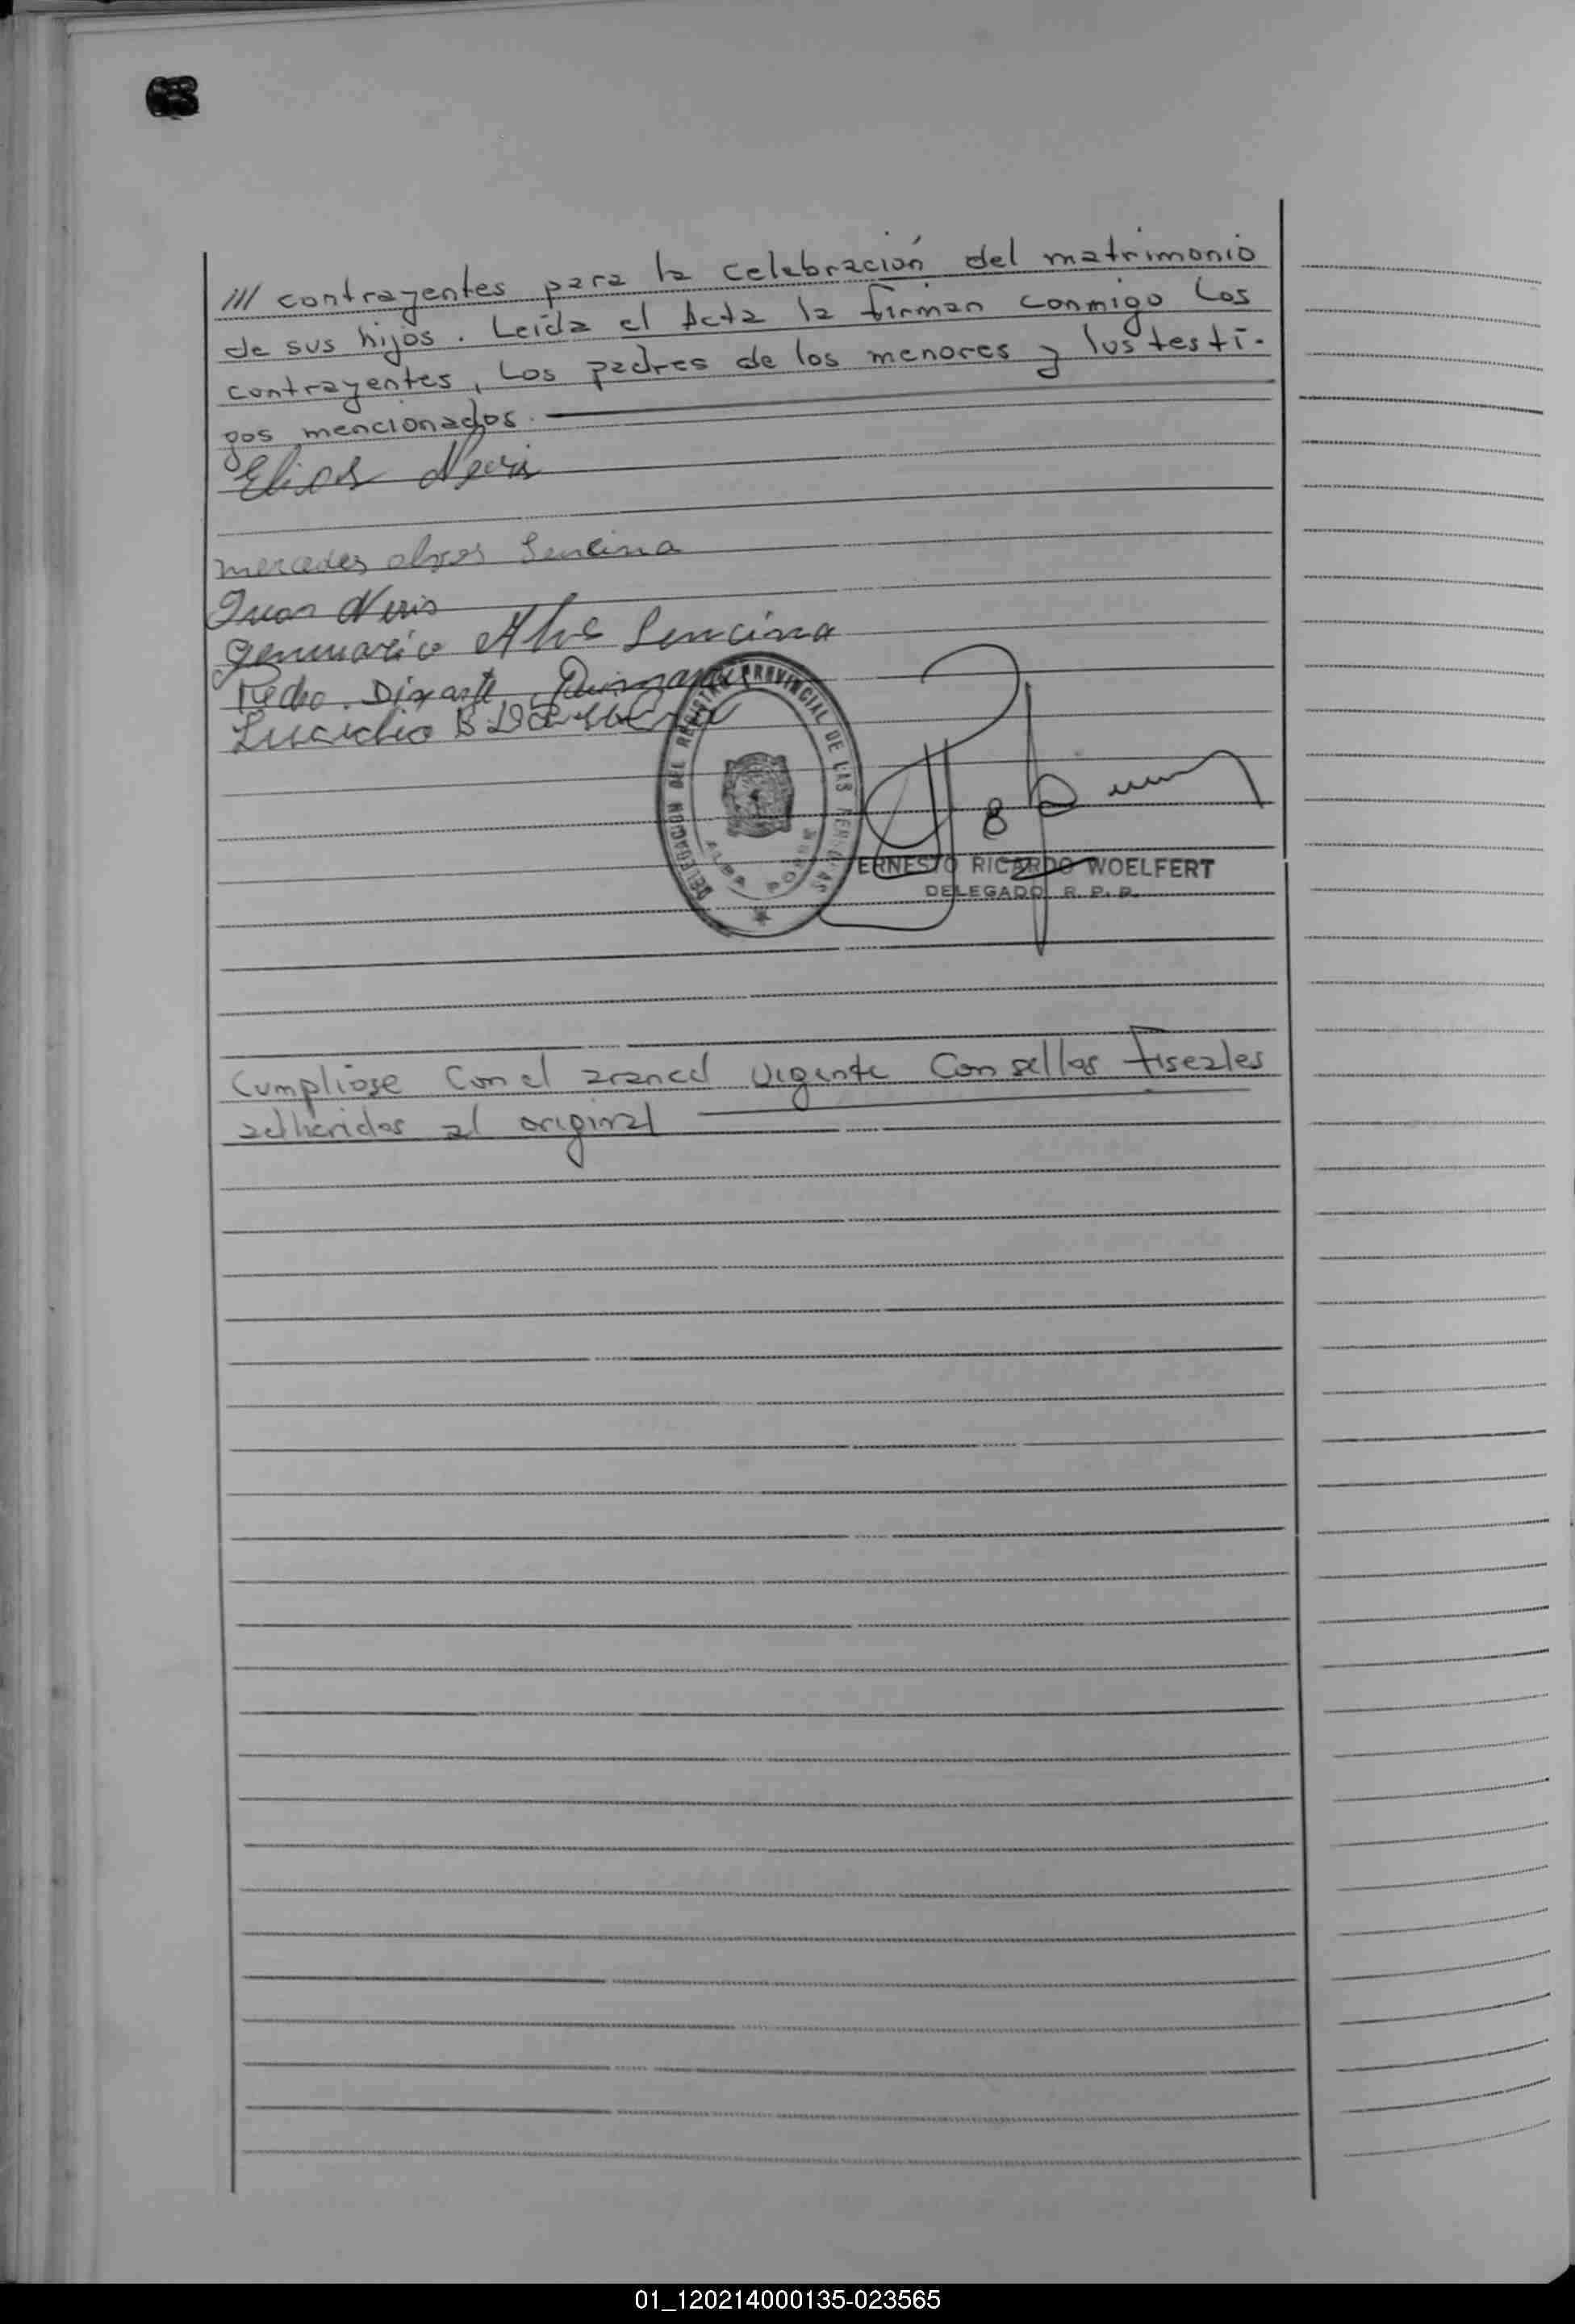 /// contrayentes para la celebración del matrimonio
de sus hijos. Leída el Acta la firman conmigo Los
contrayentes, Los padres de los menores y los testi-
gos mencionados.
Elias Neris
mercedes alves Sencina
Juan Neris
Alves Sencina
Pedro
DELEGACION DEL REGISTRO PROVINCIAL DE LAS PERSONAS
ERNESTO RICARDO WOELFERT
DELEGADO R. P. P.
Cumpliose Con el arancel Vigente Con sellos Fiscales
adheridos al original
01_120214000135-023565